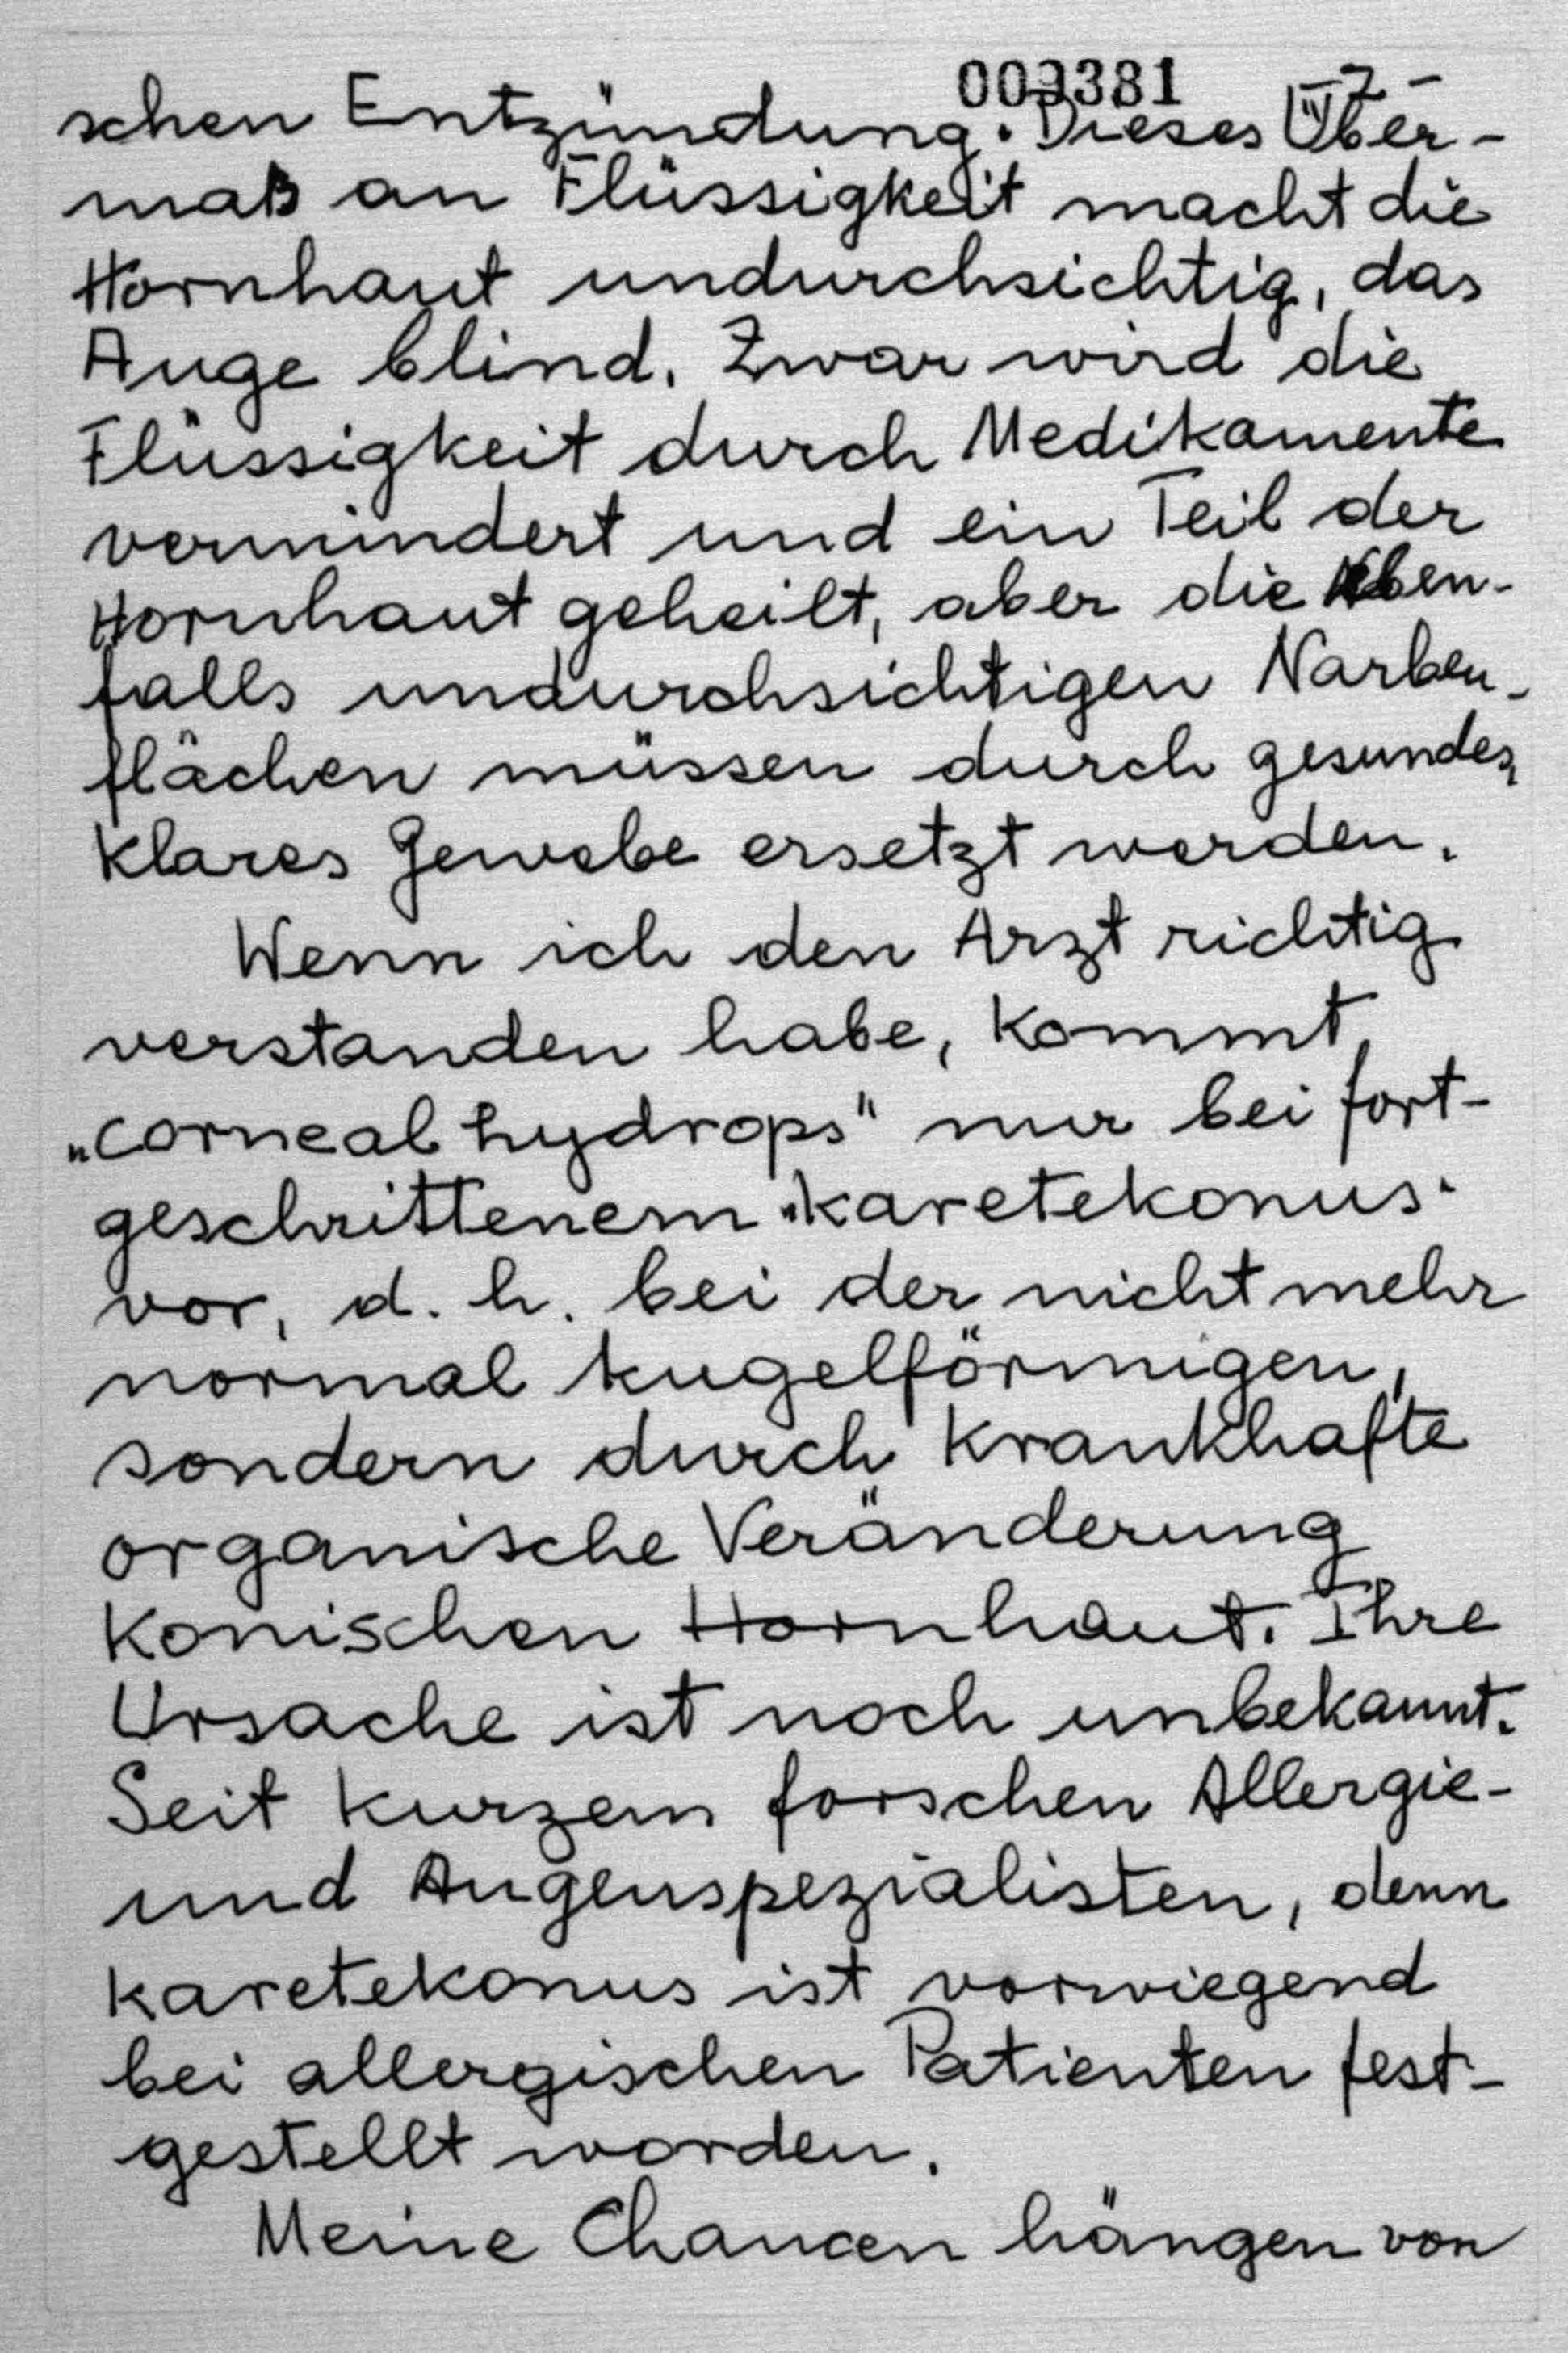 003381 -7-
schen Entzündung. Dieses Über-
maß an Flüssigkeit macht die
Hornhaut undurchsichtig, das
Auge blind. Zwar wird die
Flüssigkeit durch Medikamente
vermindert und ein Teil der
Hornhaut geheilt, aber die eben-
falls undurchsichtigen Narben-
flächen müssen durch gesundes,
klares Gewebe ersetzt werden.
Wenn ich den Arzt richtig
verstanden habe, kommt
„corneal hydrops" nur bei fort-
geschrittenem „karetekonus"
vor, d. h. bei der nicht mehr
normal kugelförmigen,
sondern durch krankhafte
organische Veränderung
konischen Hornhaut. Ihre
Ursache ist noch unbekannt.
Seit kurzem forschen Allergie-
und Augenspezialisten, denn
karetekonus ist vorwiegend
bei allergischen Patienten fest-
gestellt worden.
Meine Chancen hängen von